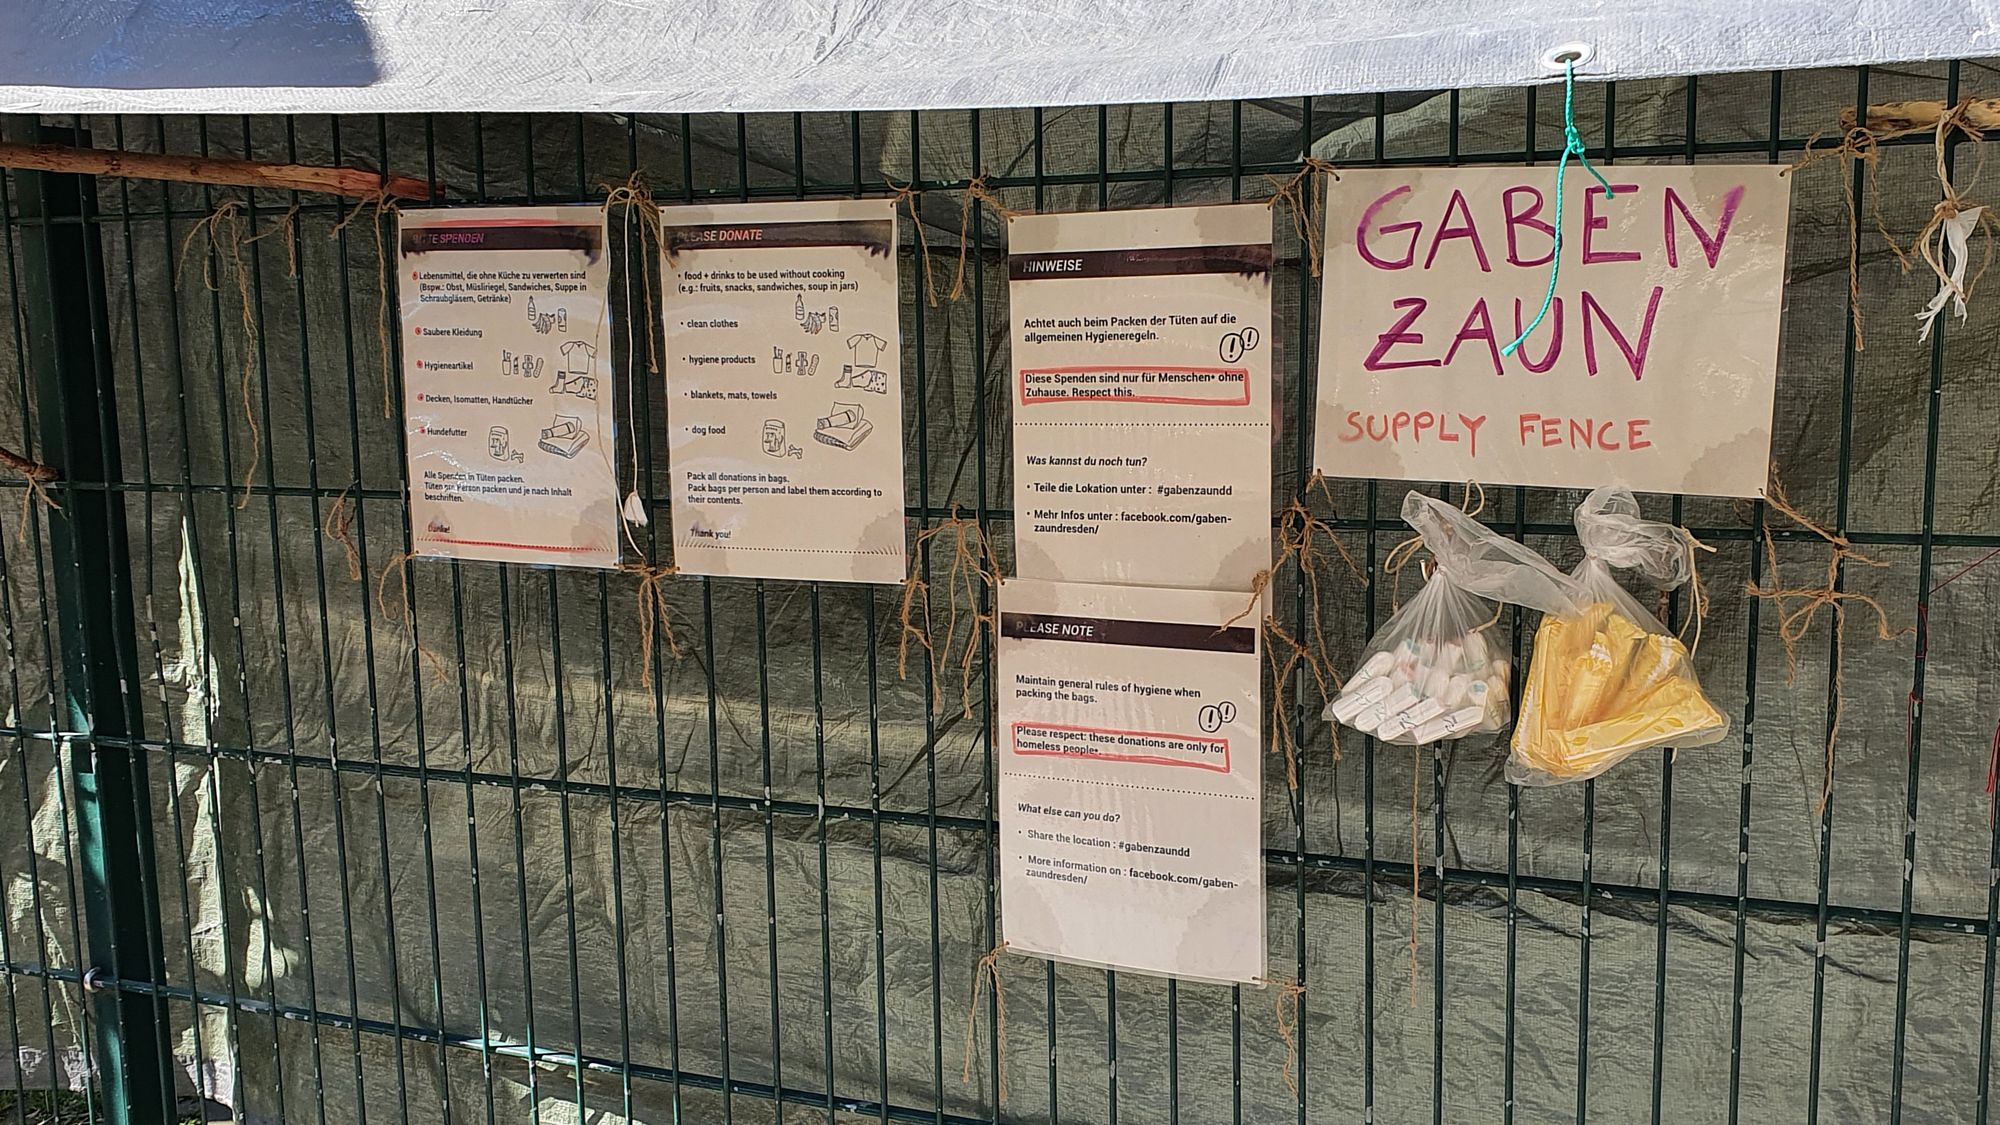 BITTE SPENDEN
Lebensmittel, die ohne Küche zu verwerten sind
(Bspw.: Obst, Müsliriegel, Sandwiches, Suppe in
Schraubgläsern, Getränke)
Saubere Kleidung
Hygieneartikel
Decken, Isomatten, Handtücher
Hundefutter
Alle Spenden in Tüten packen.
Tüten pro Person packen und je nach Inhalt
beschriften.
Danke!
PLEASE DONATE
• food + drinks to be used without cooking
(e.g.: fruits, snacks, sandwiches, soup in jars)
• clean clothes
• hygiene products
• blankets, mats, towels
• dog food
Pack all donations in bags.
Pack bags per person and label them according to
their contents.
Thank you!
HINWEISE
Achtet auch beim Packen der Tüten auf die
allgemeinen Hygieneregeln.
Diese Spenden sind nur für Menschen* ohne
Zuhause. Respect this.
Was kannst du noch tun?
• Teile die Lokation unter : #gabenzaundd
• Mehr Infos unter : facebook.com/gaben-
zaundresden/
PLEASE NOTE
Maintain general rules of hygiene when
packing the bags.
Please respect: these donations are only for
homeless people*.
What else can you do?
• Share the location : #gabenzaundd
• More information on : facebook.com/gaben-
zaundresden/
GABEN
ZAUN
SUPPLY FENCE